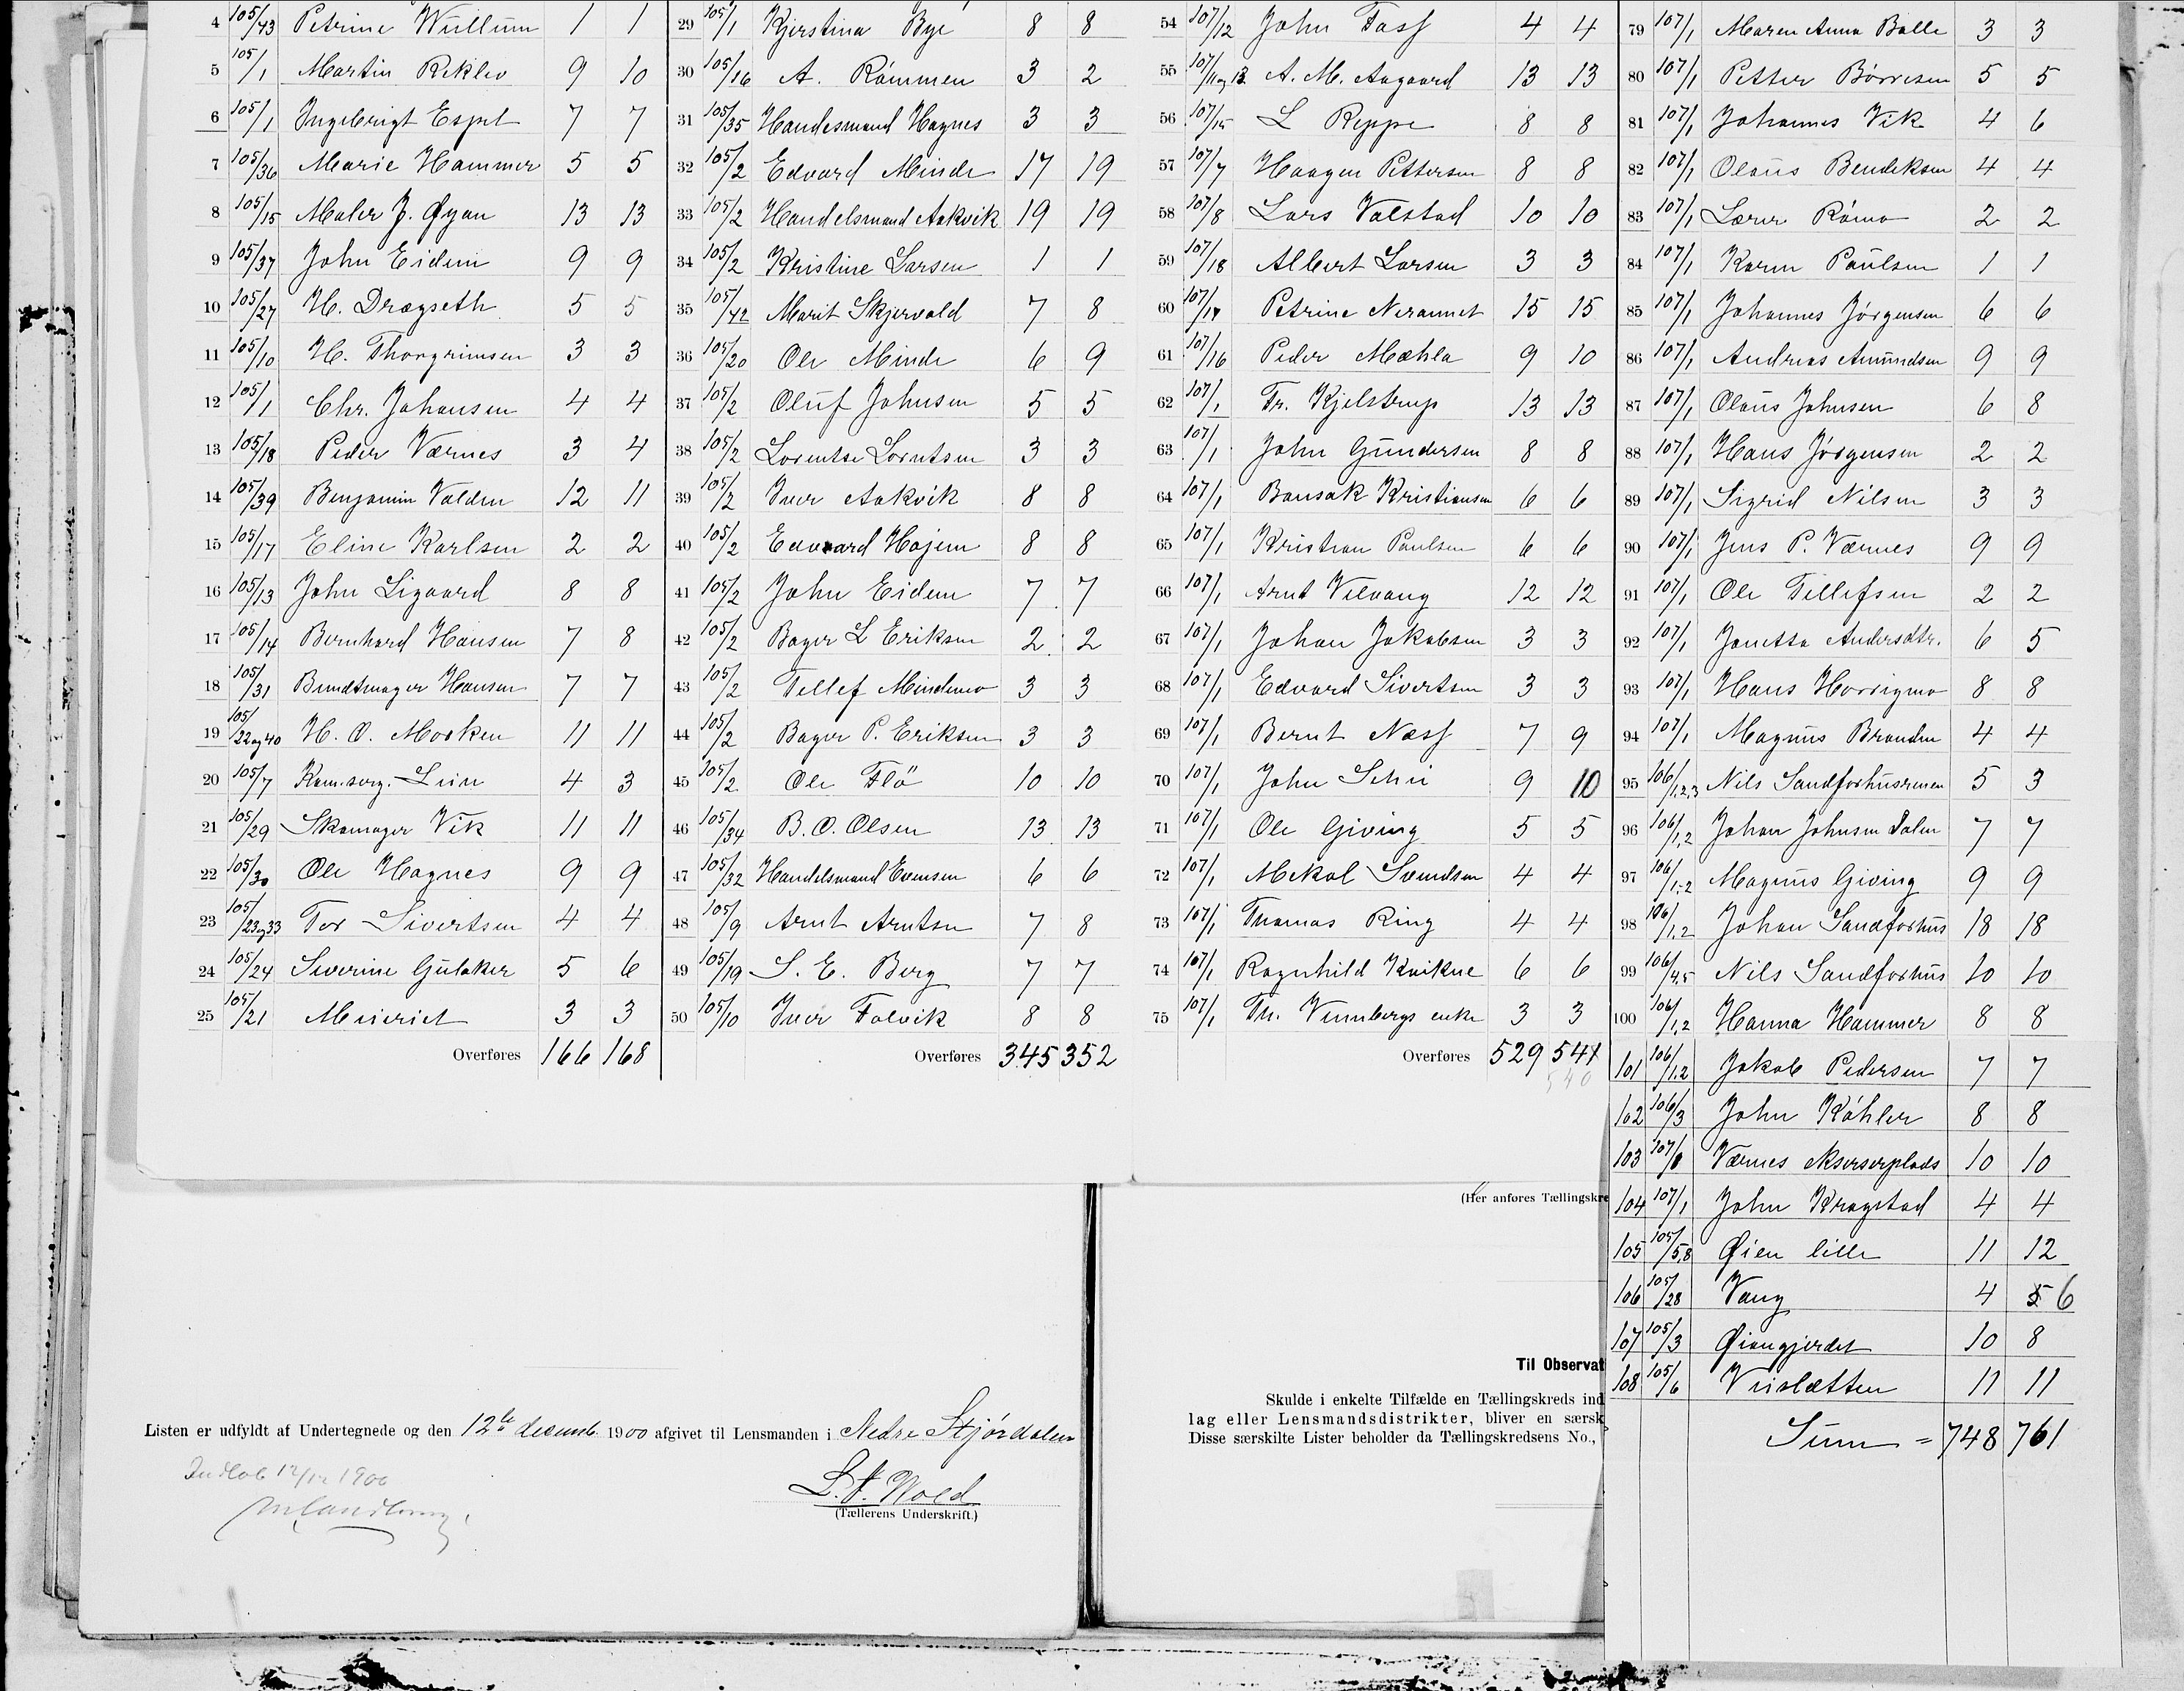 4 105/43 Petrine Wullum 1 1
5 105/1 Martin Reklev 9 10
6 105/1 Ingebrigt Espet 7 7
7 105/36 Marie Hammer 5 5
8 105/15 Maler J. Øyan 13 13
9 105/37 John Eidem 9 9
10 105/27 H. Drægseth 5 5
11 105/10 H. Thorgrimsen 3 3
12 105/1 Chr. Johansen 4 4
13 105/18 Peder Værnes 3 4
14 105/39 Benjamin Valden 12 11
15 105/17 Eline Karlsen 2 2
16 105/13 John Ligaard 8 8
17 105/14 Bernhard Hansen 7 8
18 105/31 Bundtmager Hansen 7 7
19 105/22og40 H. O. Mooken 11 11
20 105/7 Kem.sorg. Lein 4 3
21 105/29 Skomager Vik 11 11
22 105/30 Ole Hognes 9 9
23 105/23og33 Tor Sivertsen 4 4
24 105/24 Severine Gulaker 5 6
25 105/21 Meieriet 3 3
Overføres 166 168
29 105/1 Kjerstina Bye 8 8
30 105/16 A. Rømmen 3 2
31 105/35 Handesmand Hognes 3 3
32 105/2 Edvard Minde 17 19
33 105/2 Handelsmand Aakvik 19 19
34 105/2 Kristine Larsen 1 1
35 105/42 Marit Skjervold 7 8
36 105/20 Ole Minde 6 9
37 105/2 Oluf Johnsen 5 5
38 105/2 Lorentse Lorntsen 3 3
39 105/2 Iver Aakvik 8 8
40 105/2 Edvard Hojem 8 8
41 105/2 John Eidem 7 7
42 105/2 Bager L Eriksen 2 2
43 105/2 Tellef Mindemo 3 3
44 105/2 Bager P. Eriksen 3 3
45 105/2 Ole Flö 10 10
46 105/34 B. O. Olsen 13 13
47 105/32 Handelsmand Evensen 6 6
48 105/9 Arnt Arntsen 7 8
49 105/19 S. E. Berg 7 7
50 105/10 Iver Folvik 8 8
Overføres 345 352
54 107/12 John Fass 4 4
55 107/11og13 A. M. Aagaard 13 13
56 107/15 L Reppe 8 8
57 107/7 Haagen Pettersen 8 8
58 107/8 Lars Valstad 10 10
59 107/18 Albert Larsen 3 3
60 107/17 Petrine Nerammet 15 15
61 107/16 Peder Mæhla 9 10
62 107/1 Fr. Kjelstrup 13 13
63 107/1 John Gundersen 8 8
64 107/1 Bonsak Kristiansen 6 6
65 107/1 Kristian Paulsen 6 6
66 107/1 Arnt Vilvang 12 12
67 107/1 Johan Jakobsen 3 3
68 107/1 Edvard Sivertsen 3 3
69 107/1 Bernt Næss 7 9
70 107/1 John Schei 9 10
71 107/1 Ole Giving 5 5
72 107/1 Mekal Svendsen 4 4
73 107/1 Thomas Ring 4 4
74 107/1 Ragnhild Kvikne 6 6
75 107/1 Th. Vennbergs enke 3 3
Overføres 529 541
540
79 107/1 Maren Anna Balle 3 3
80 107/1 Petter Børresen 5 5
81 107/1 Johannes Vik 4 6
82 107/1 Olaus Bendeksen 4 4
83 107/1 Lærer Rømo 2 2
84 107/1 Karen Paulsen 1 1
85 107/1 Johannes Jørgensen 6 6
86 107/1 Andreas Amundsen 9 9
87 107/1 Olaus Johnsen 6 8
88 107/1 Hans Jørgensen 2 2
89 107/1 Sigrid Nilsen 3 3
90 107/1 Jens P. Værnes 9 9
91 107/1 Ole Tellefsen 2 2
92 107/1 Jonetta Andersdtr. 6 5
93 107/1 Hans Horrigmo 8 8
94 107/1 Magnus Branden 4 4
95 106/1,2,3 Nils Sandforhusrenen 5 3
96 106/1,2 Johan Johnsen Dalen 7 7
97 106/1,2 Magnus Giving 9 9
98 106/1,2 Johan Sandforhus 18 18
99 106/4,5 Nils Sandforhus 10 10
100 106/1,2 Hanna Hammer 8 8
101 106/1,2 Jakob Pedersen 7 7
102 106/3 John Køhler 8 8
103 107/1 Værnes ekserserplads 10 10
104 107/1 John Kragstad 4 4
105 105/5,8 Øien lille 11 12
106 105/28 Vang 4 5 6
107 105/3 Øiangjerdet 10 8
108 105/6 Veislætten 11 11
Sum = 748 761
Listen er udfyldt af Undertegnede og den 12te decemb. 1900 afgivet til Lensmanden i Nedre Stjørdalen
Indlob 12/12 1900
L. A. Wold
(Tællerens Underskrift.)
(Her anføres Tællingskre
Til Observat
Skulde i enkelte Tilfælde en Tællingskreds ind
lag eller Lensmandsdistrikter, bliver en særsk
Disse særskilte Lister beholder da Tællingskredsens No.,